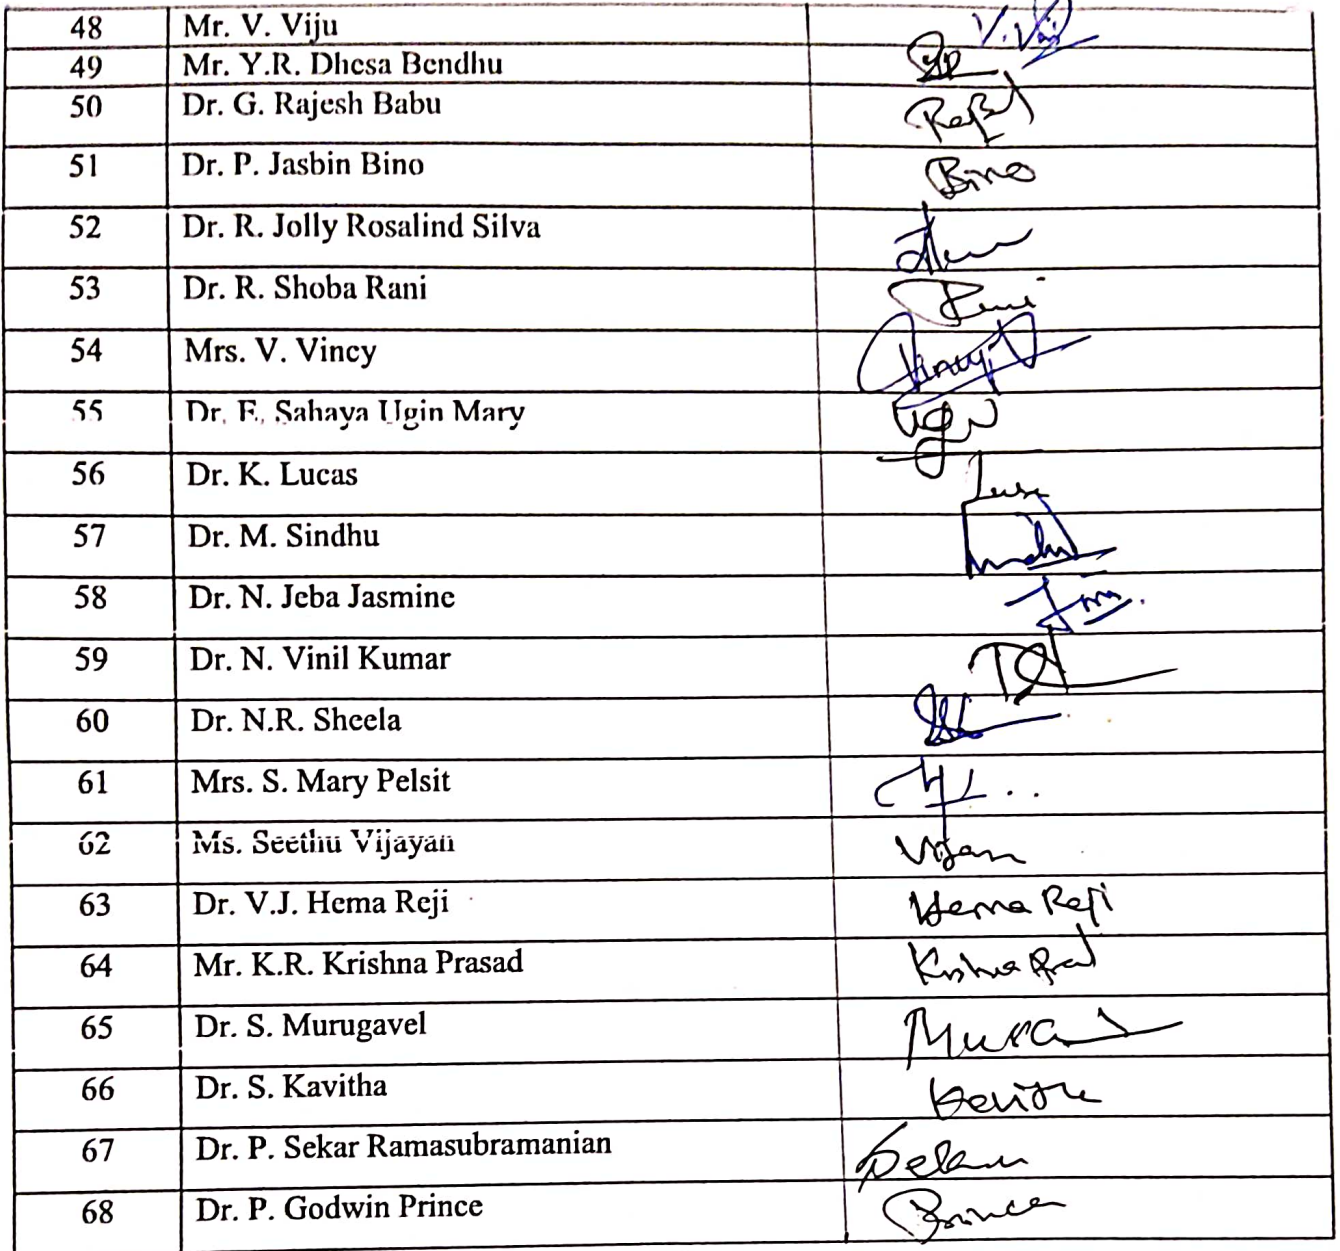 48 Mr. V. Viju V. Viju
49 Mr. Y.R. Dhesa Bendhu
50 Dr. G. Rajesh Babu
51 Dr. P. Jasbin Bino Bino
52 Dr. R. Jolly Rosalind Silva
53 Dr. R. Shoba Rani Rani
54 Mrs. V. Vincy Vincy
55 Dr. E. Sahaya Ugin Mary Ugin
56 Dr. K. Lucas
57 Dr. M. Sindhu
58 Dr. N. Jeba Jasmine
59 Dr. N. Vinil Kumar
60 Dr. N.R. Sheela
61 Mrs. S. Mary Pelsit
62 Ms. Seethu Vijayan
63 Dr. V.J. Hema Reji Hema Reji
64 Mr. K.R. Krishna Prasad Krishna Prasad
65 Dr. S. Murugavel
66 Dr. S. Kavitha Kavitha
67 Dr. P. Sekar Ramasubramanian
68 Dr. P. Godwin Prince Prince